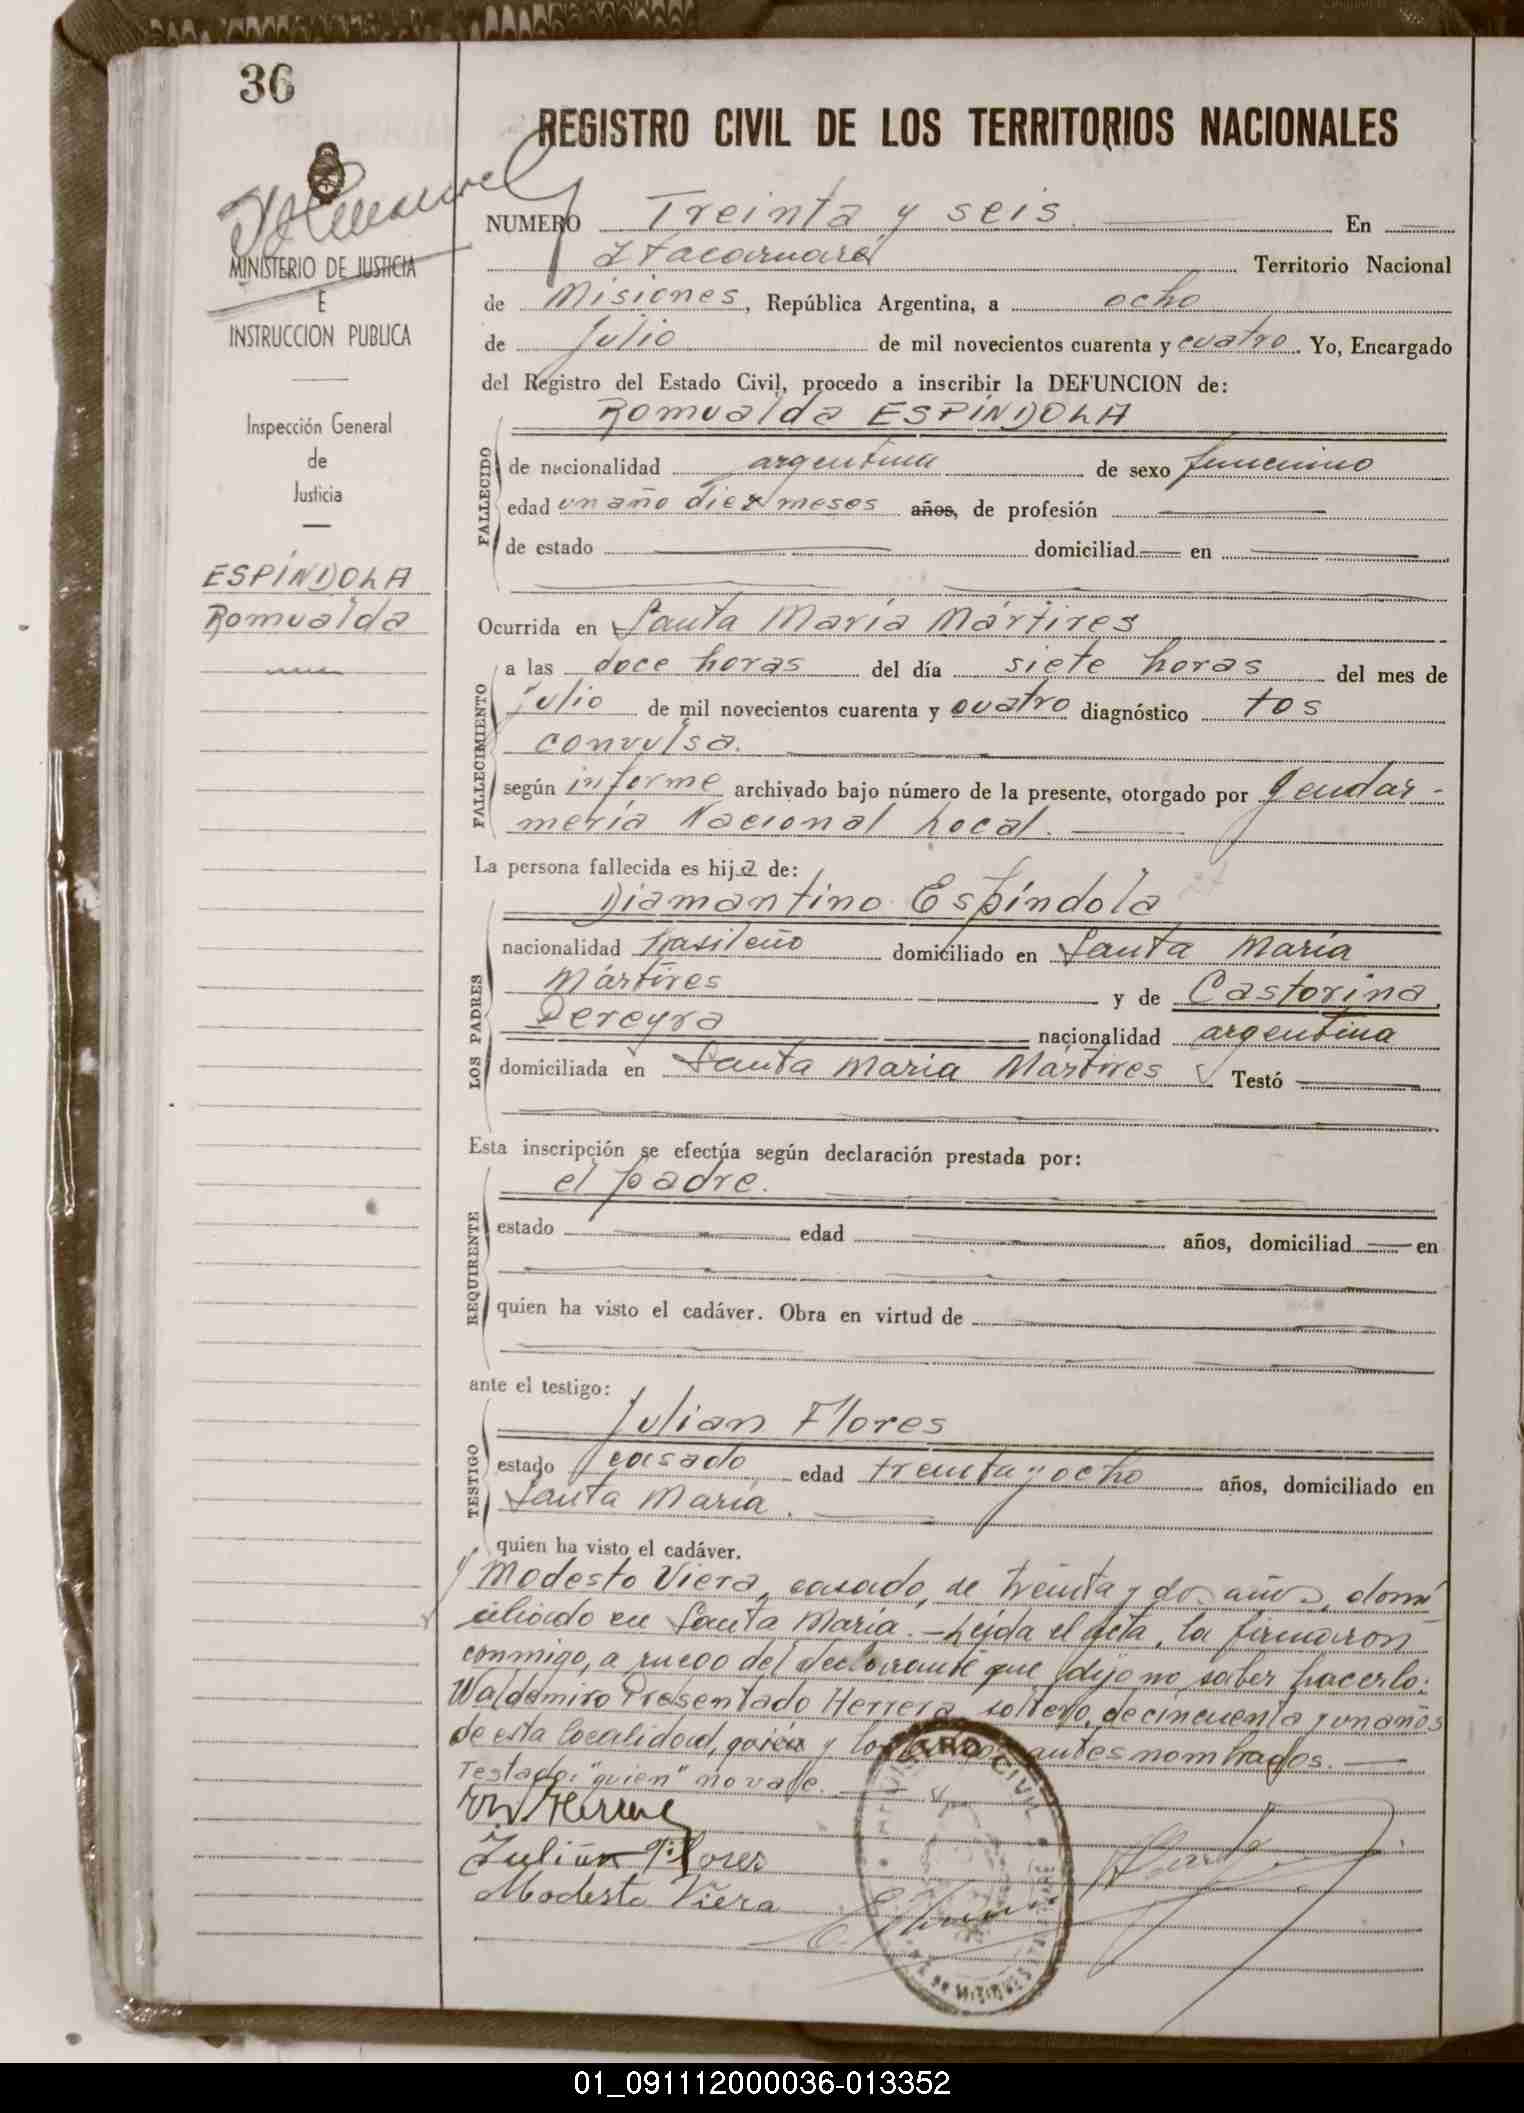 36
REGISTRO CIVIL DE LOS TERRITORIOS NACIONALES
MINISTERIO DE JUSTICIA
E
INSTRUCCION PUBLICA
Inspección General
de
Justicia
ESPÍNDOLA
Romualda
NUMERO Treinta y seis En
Itacaruaré Territorio Nacional
de Misiones, República Argentina, a ocho
de Julio de mil novecientos cuarenta y cuatro. Yo, Encargado
del Registro del Estado Civil, procedo a inscribir la DEFUNCION de:
Romualda ESPÍNDOLA
FALLECIDO
de nacionalidad argentina de sexo femenino
edad un año diez meses años, de profesión
de estado domiciliad en
Ocurrida en Santa María Mártires
FALLECIMIENTO
a las doce horas del día siete horas del mes de
julio de mil novecientos cuarenta y cuatro diagnóstico tos
convulsa.
según informe archivado bajo número de la presente, otorgado por Gendar-
mería Nacional Local.
La persona fallecida es hija de:
LOS PADRES
Diamantino Espíndola
nacionalidad brasileño domiciliado en Santa María
Mártires y de Castorina
Pereyra nacionalidad argentina
domiciliada en Santa María Mártires Testó
Esta inscripción se efectúa según declaración prestada por:
REQUIRENTE
el padre.
estado edad años, domiciliad en
quien ha visto el cadáver. Obra en virtud de
ante el testigo:
TESTIGO
Julian Flores
estado casado edad treinta y ocho años, domiciliado en
Santa María.
quien ha visto el cadáver.
y Modesto Viera, casado, de treinta y dos años, domi
ciliado en Santa María.- Leída el acta, la firmaron
conmigo, a ruego del declarante que dijo no saber hacerlo:
Waldomiro Presentado Herrera, soltero, de cincuenta y un años
de esta localidad, quien y los antes nombrados.
Testado: "quien" no vale.
W Herrera
Julián Flores
Modesto Viera
REGISTRO CIVIL
01_091112000036-013352